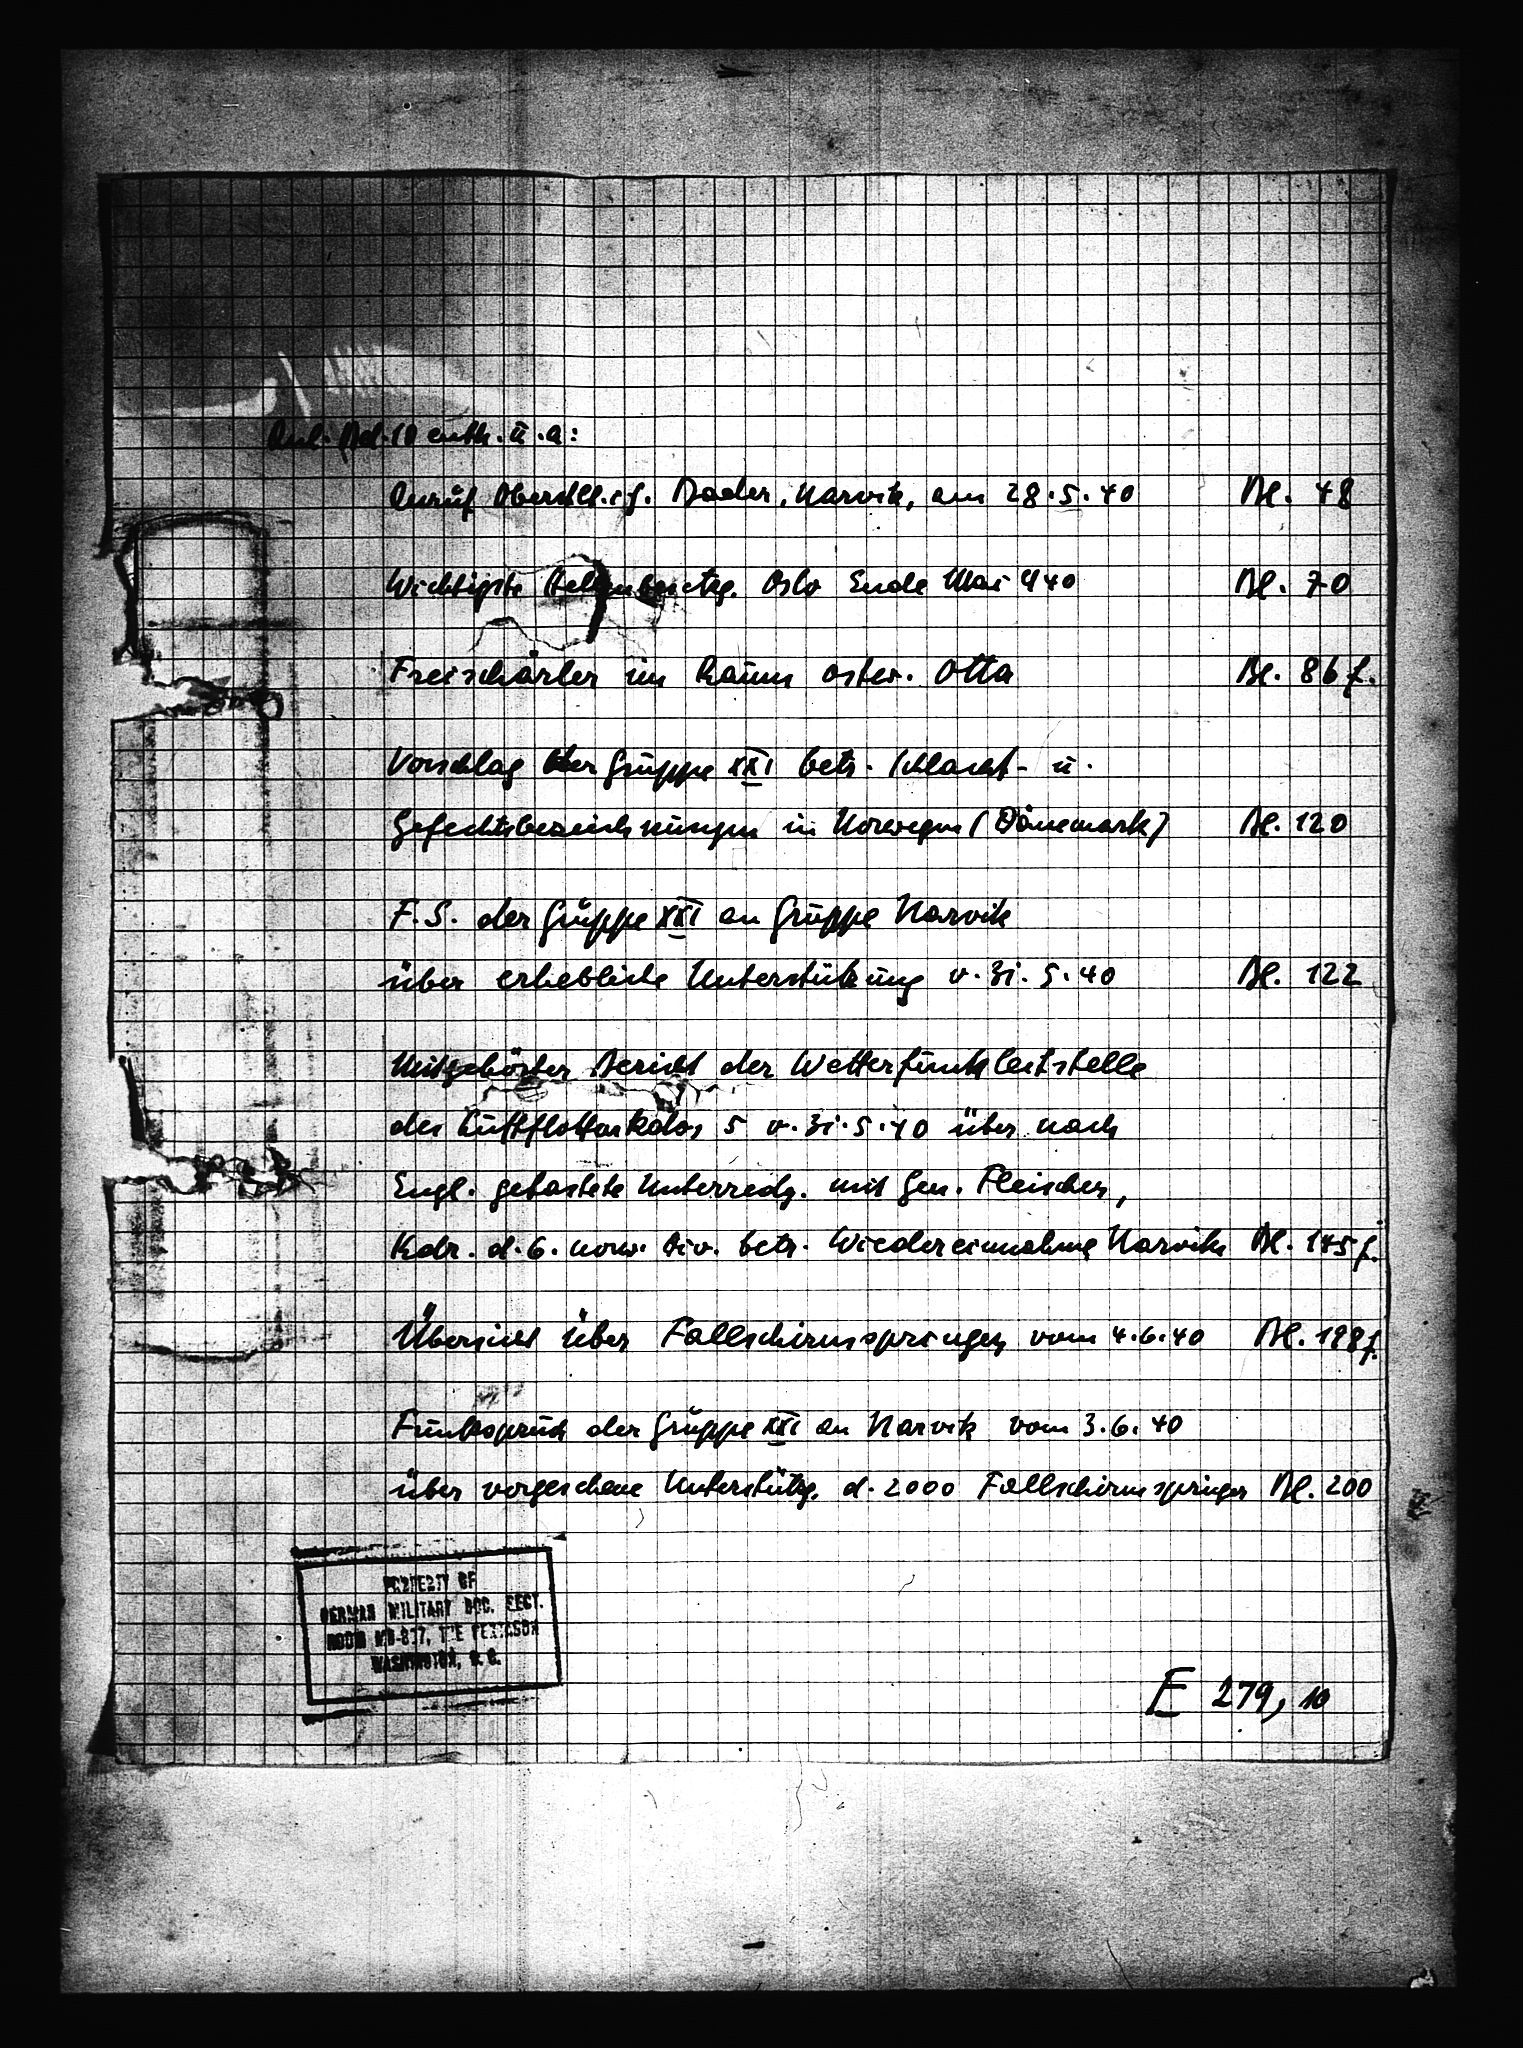 Anl. Bd. 10 enth. u. a:
Anruf Oberstlt. i.G. Bader, Narvik, am 28.5.40 Bl. 48
Wichtigste Stellenbesetzg. Oslo Ende Mai 940 Bl. 70
Freischärler im Raum oster. Otta Bl. 86 f.
Vorschlag der Gruppe XXI betr. Schlacht- u.
Gefechtsbezeichnungen in Norwegen (Dänemark) Bl. 120
F.S. der Gruppe XXI an Gruppe Narvik
über erhebliche Unterstützung v. 31.5.40 Bl. 122
Mitgehörter Bericht der Wetterfunkleitstelle
des Luftflottenkdos 5 v. 31.5.40 über nach
Engl. getastete Unterredg. mit Gen. Fleischer,
Kdr. d. 6. norw. Div. betr. Wiedereinnahme Narviks Bl. 145 f.
Übersicht über Fallschirmspringer vom 4.6.40 Bl. 188 f.
Funkspruch der Gruppe XXI an Narvik vom 3.6.40
über vorgesehene Unterstützg. d. 2000 Fallschirmspringer Bl. 200
PROPERTY OF
GERMAN MILITARY DOC. SECT.
ROOM MB-877, THE PENTAGON
WASHINGTON, D. C.
E 279, 10